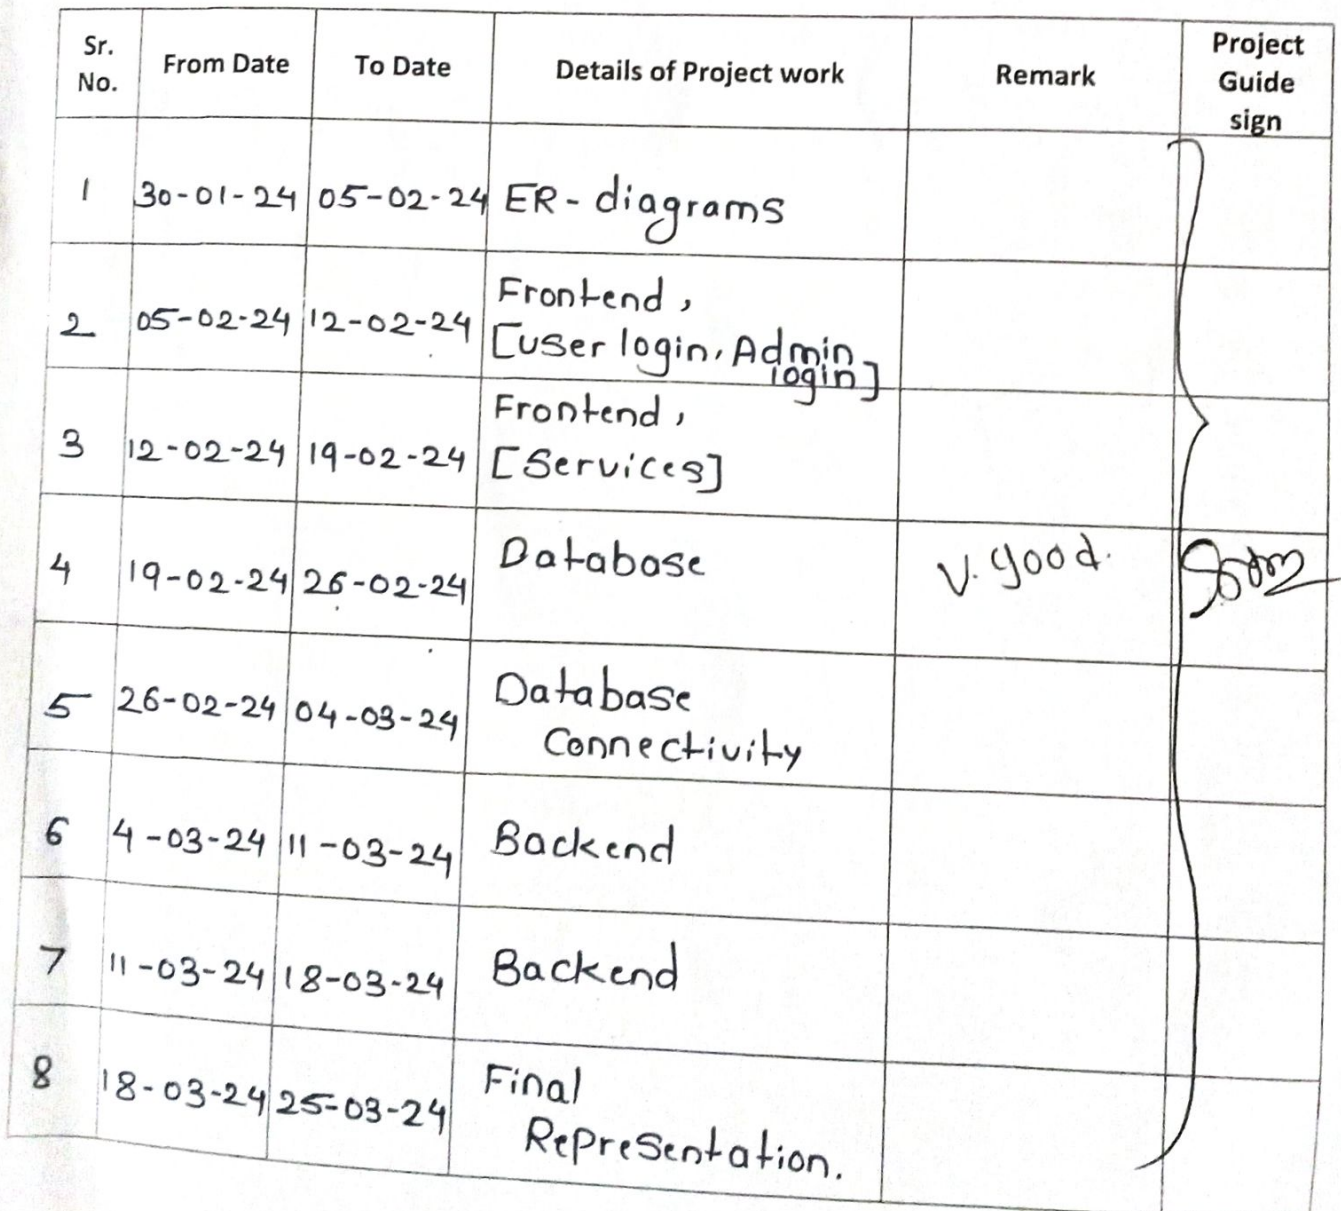 Sr. No. From Date To Date Details of Project work Remark Project Guide sign
1 30-01-24 05-02-24 ER-diagrams
2 05-02-24 12-02-24 Frontend,
[user login, Admin
login]
3 12-02-24 19-02-24 Frontend,
[Services]
4 19-02-24 26-02-24 Database V. good.
5 26-02-24 04-03-24 Database
Connectivity
6 4-03-24 11-03-24 Backend
7 11-03-24 18-03-24 Backend
8 18-03-24 25-03-24 Final
Representation.